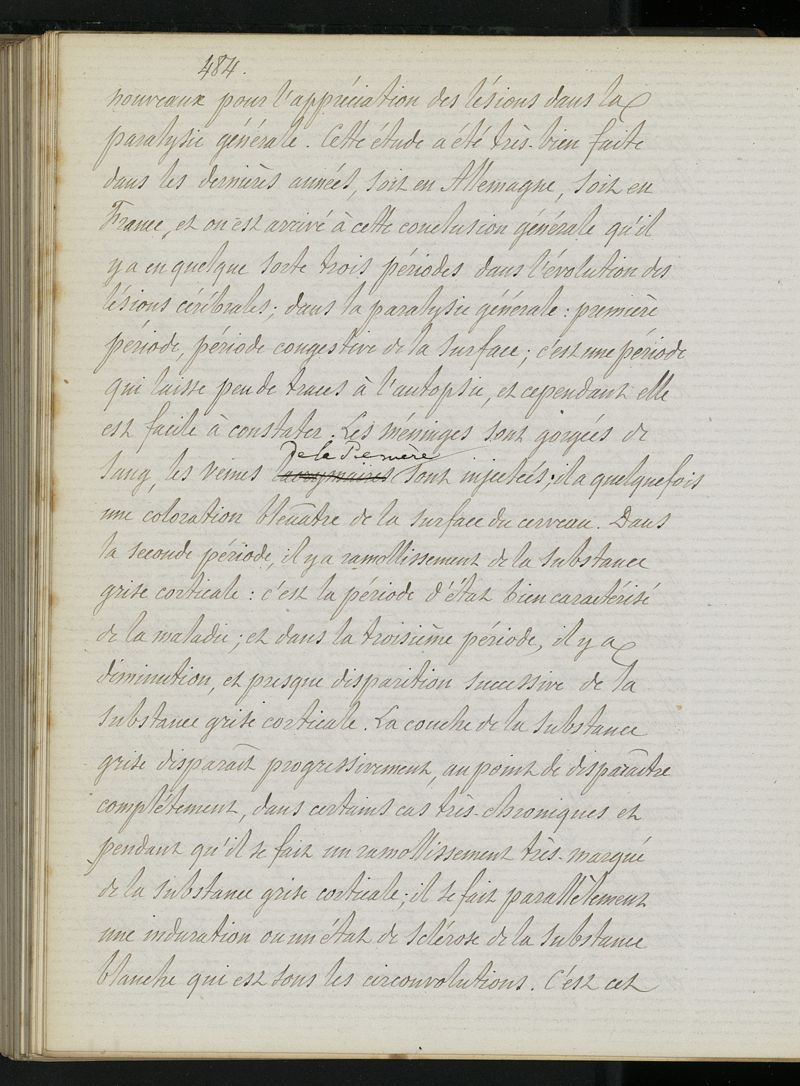 484.
nouveaux pour l'appréciation des lésions dans la
paralysie générale. Cette étude a été très-bien faite
dans les dernières années, soit en Allemagne, soit en
France, et on est arrivé à cette conclusion générale qu'il
y a en quelque sorte trois périodes dans l'évolution des
lésions cérébrales; dans la paralysie générale: première
période, période congestive de la surface; c'est une période
qui laisse peu de traces à l'autopsie, et cependant elle
est facile à constater. Les méninges sont gorgées de
de la Pie mère
sang, les veines sont injectées; il a quelquefois
une coloration bleuâtre de la surface du cerveau. Dans
la seconde période, il y a ramollissement de la substance
grise corticale: c'est la période d'état bien caractérisé
de la maladie; et dans la troisième période, il y a
diminution, et presque disparition successive de la
substance grise corticale. La couche de la substance
grise disparaît progressivement, au point de disparaître
complètement, dans certains cas très-chroniques et
pendant qu'il se fait un ramollissement très-marqué
de la substance grise corticale; il se fait parallèlement
une induration ou un état de sclérose de la substance
blanche qui est sous les circonvolutions. C'est cet